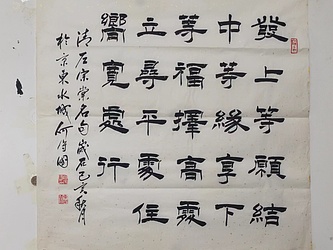 發上等願結
中等緣享下
等福擇高處
立尋平處住
嚮寬處行
清左宗棠名句歲在己亥秋月
於京東水城何國